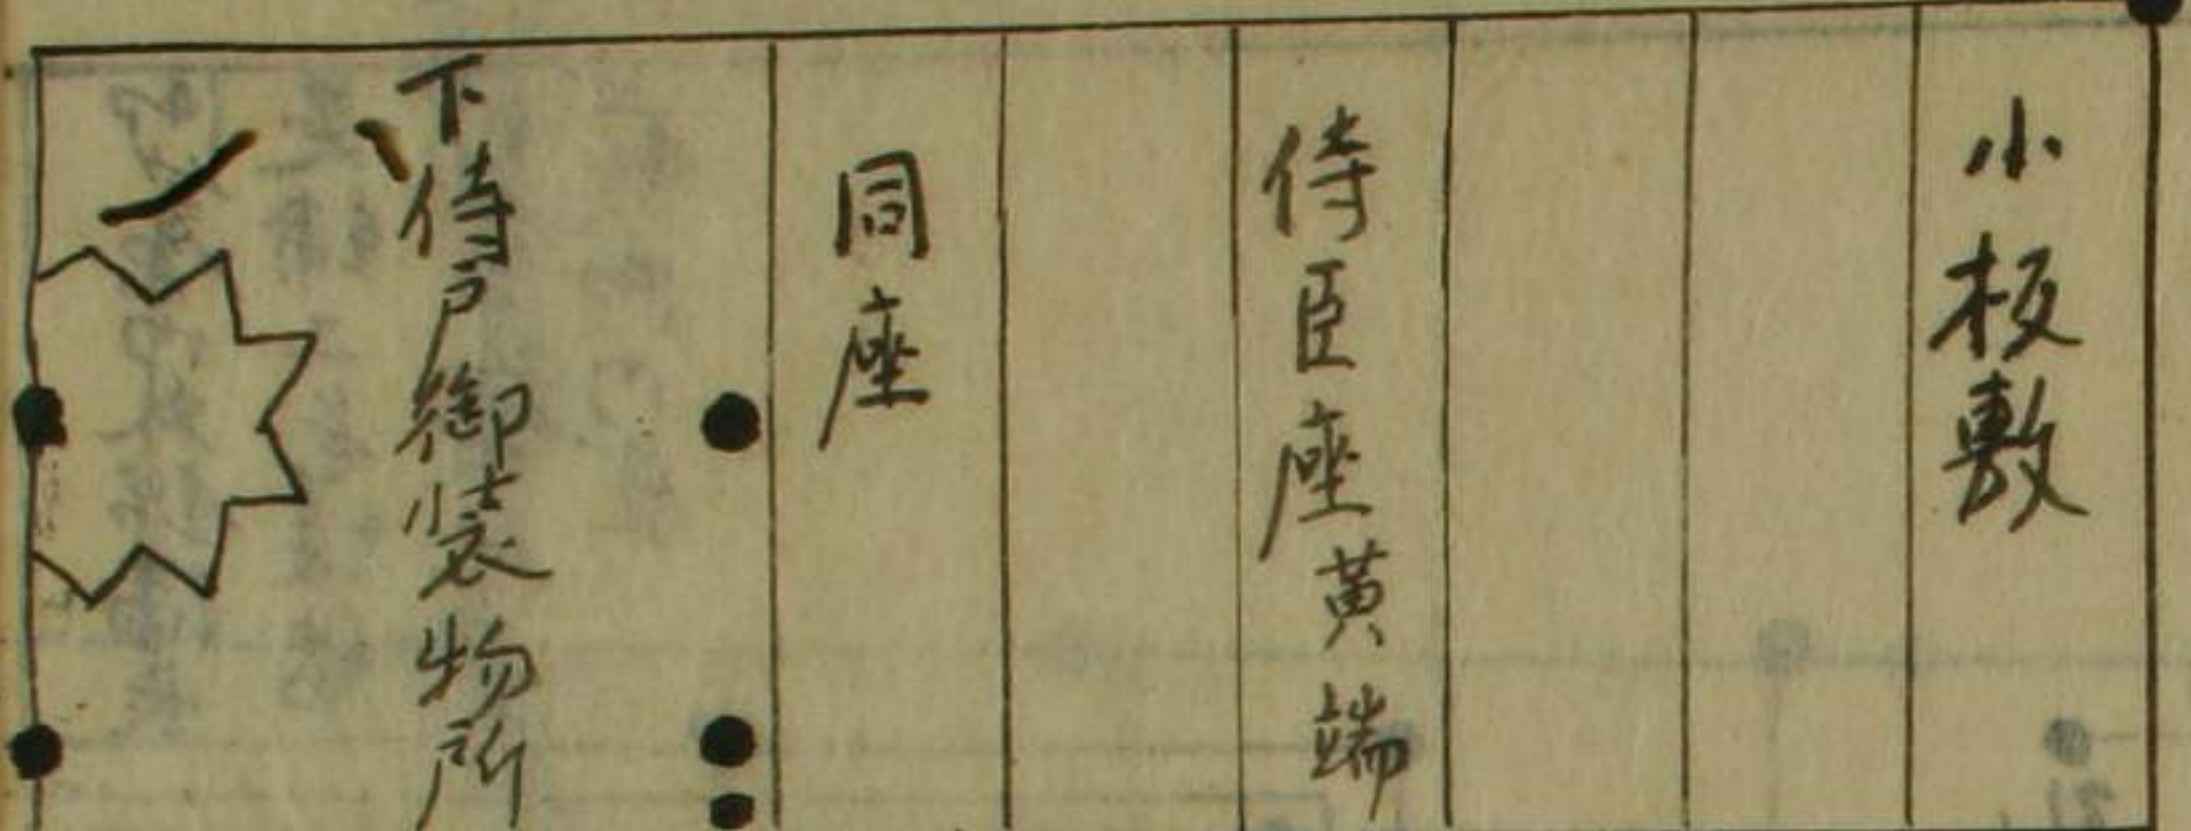 小板敷
侍臣座黄端
同座
下侍戸御装物所